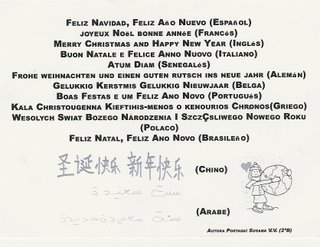 Feliz Navidad, Feliz Año Nuevo (Español)
joyeux Noël bonne année (Francés)
Merry Christmas and Happy New Year (Inglés)
Buon Natale e Felice Anno Nuovo (Italiano)
Atum Diam (Senegalés)
Frohe weihnachten und einen guten rutsch ins neue jahr (Alemán)
Gelukkig Kerstmis Gelukkig Nieuwjaar (Belga)
Boas Festas e um Feliz Ano Novo (Portugués)
Kala Christougenna Kieftihis-menos o kenourios Chronos(Griego)
Wesolych Swiat Bozego Narodzenia I SzczQsliwego Nowego Roku
(Polaco)
Feliz Natal, Feliz Ano Novo (Brasileño)
圣诞快乐 新年快乐 (Chino)
سنة سعيدة
سنة سعيدة جديدة
(Arabe)
Autora Portada: Susana V.V. (2ºB)